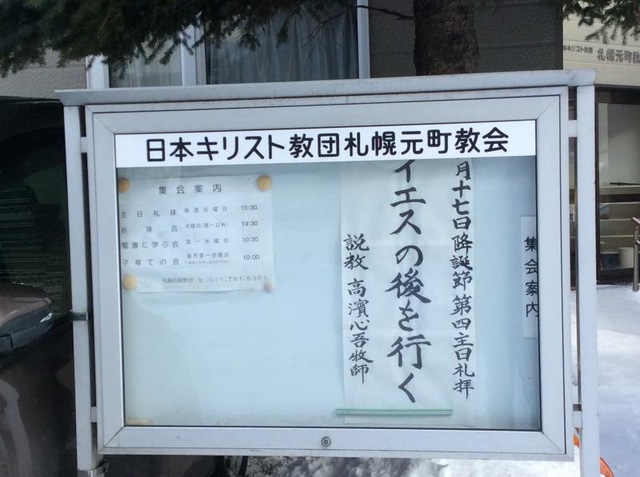 日本キリスト教団札幌元町教会
月十七日降誕節第四主日礼拝
イエスの後を行く
説教 高濱心吾牧師
集会案内
集会案内
主日礼拝 毎週日曜日 10:30
祈祷会 19:30
聖書に学ぶ会 第一水曜日 10:30
子育ての会 毎月第一金曜日 10:00
札幌元町教会
札幌元町教